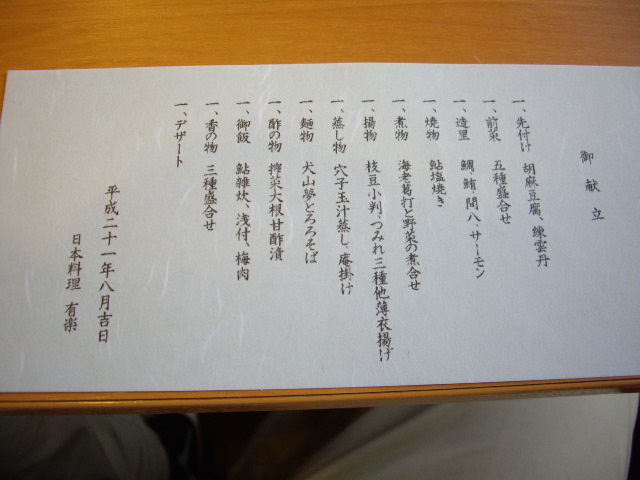 御献立
一、先付け　胡麻豆腐、練雲丹
一、前菜　五種盛合せ
一、造里　鯛、鮪、間八、サーモン
一、焼物　鮎塩焼き
一、煮物　海老葛打と野菜の煮合せ
一、揚物　枝豆小判、つみれ三種他薄衣揚げ
一、蒸し物　穴子玉汁蒸し、庵掛け
一、麺物　犬山夢とろろそば
一、酢の物　搾菜大根甘酢漬
一、御飯　鮎雑炊、浅付、梅肉
一、香の物　三種盛合せ
一、デザート
平成二十一年八月吉日
日本料理　有楽